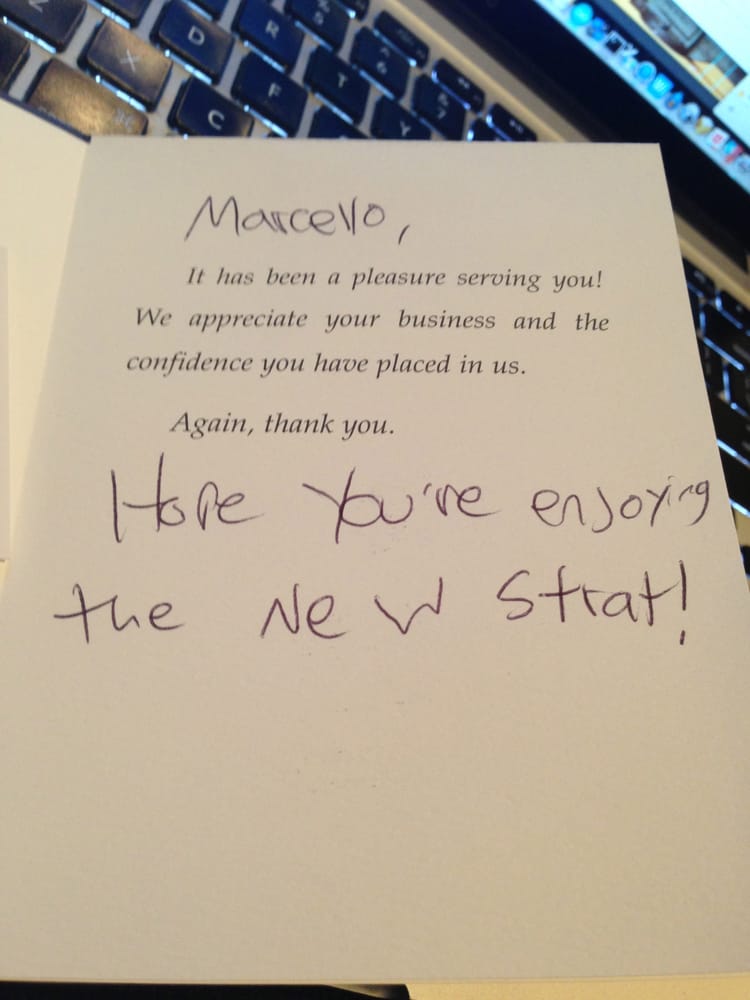 Z
X
D
R
5
%
⌘
C
F
T
6
^
Y
7
&
Marcello,
It has been a pleasure serving you!
We appreciate your business and the
confidence you have placed in us.
Again, thank you.
Hope You're enjoying
the New Strat!